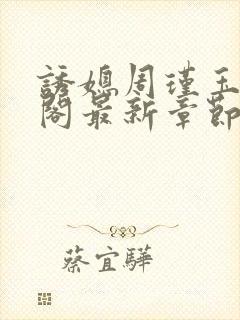 誘媳周瑾玉
閣最新章節
蔡宜驊